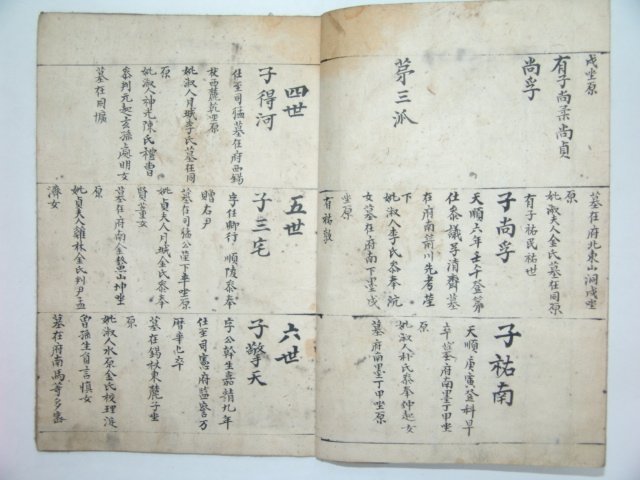 戌坐原
有子尚柔尚貞
尚孚
第三派
墓在府北東山洞戌坐
原
妣淑夫人金氏墓在同原
有子祐民祐世
子尚孚
天順六年壬午登第
仕參議号清齋墓
在府南箭川先考塋
下
妣淑人李氏參奉
女墓在府南下墨戌
坐原
有祐
子祐南
天順庚寅登科早
卒葬府南墨丁甲坐
原
妣淑人朴氏參奉仲起女
墓府南墨丁甲坐原
四世
子得河
仕至司猛墓在府西錫
杖西麓乾坐原
妣淑人月城李氏墓在同
原
妣淑人神光陳氏禮曹
參判元女玄孫處明女
墓在同
五世
子三宅
字任卿行順陵參奉
贈右尹
墓在司猛公塋下辛坐原
妣貞夫人月城金氏參奉
賢董女
墓在府南金鰲山坤坐
原
妣貞夫人雞林金氏判尹孟
濟女
六世
子擎天
字公幹生嘉靖九年
仕至司憲府監察万
曆辛巳卒
墓在錫杖東麓子坐
原
妣淑人水原金氏校理
曾孫生員言愼女
墓在府南馬等